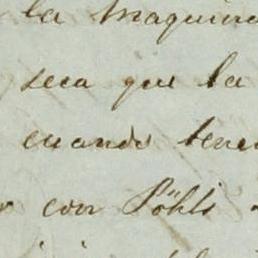 la maquina
seca que la
cuando tene
con Pöhls